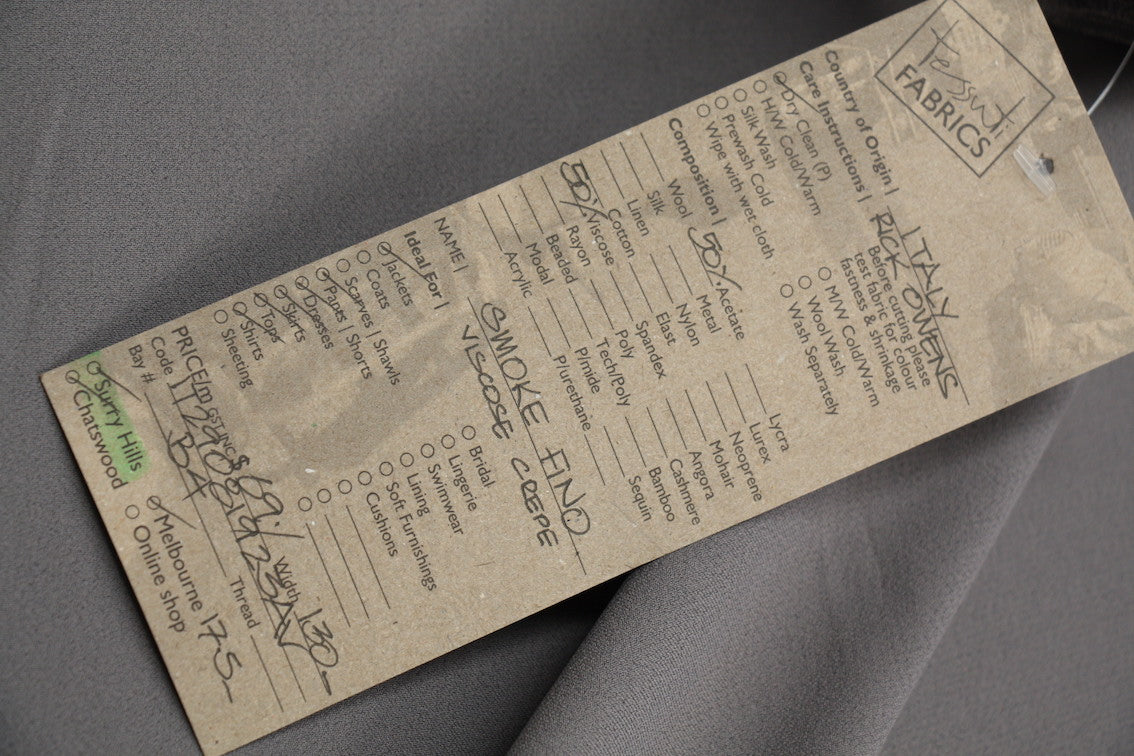 tessuti
FABRICS
Country of Origin | ITALY
RICK OWENS
Care Instructions | Before cutting please
test fabric for colour
fastness & shrinkage
Dry Clean (P)
H/W Cold/Warm
Silk Wash
Prewash Cold
Wipe with wet cloth
M/W Cold/Warm
Wool Wash
Wash Separately
Composition |
Wool
Silk
Linen
Cotton
50% Viscose
Rayon
Beaded
Modal
Acrylic
50% Acetate
Metal
Nylon
Elast
Spandex
Poly
Tech/Poly
P/mide
P/urethane
Lycra
Lurex
Neoprene
Mohair
Angora
Cashmere
Bamboo
Sequin
NAME | SMOKE FINO
VISCOSE CREPE
Ideal For |
Jackets
Coats
Scarves | Shawls
Pants | Shorts
Dresses
Skirts
Tops
Shirts
Sheeting
Bridal
Lingerie
Swimwear
Lining
Soft Furnishings
Cushions
PRICE/m GST INC $ 69./ Width 130-
Code
Bay # Thread
Surry Hills
Chatswood
Melbourne 17.5-
Online shop